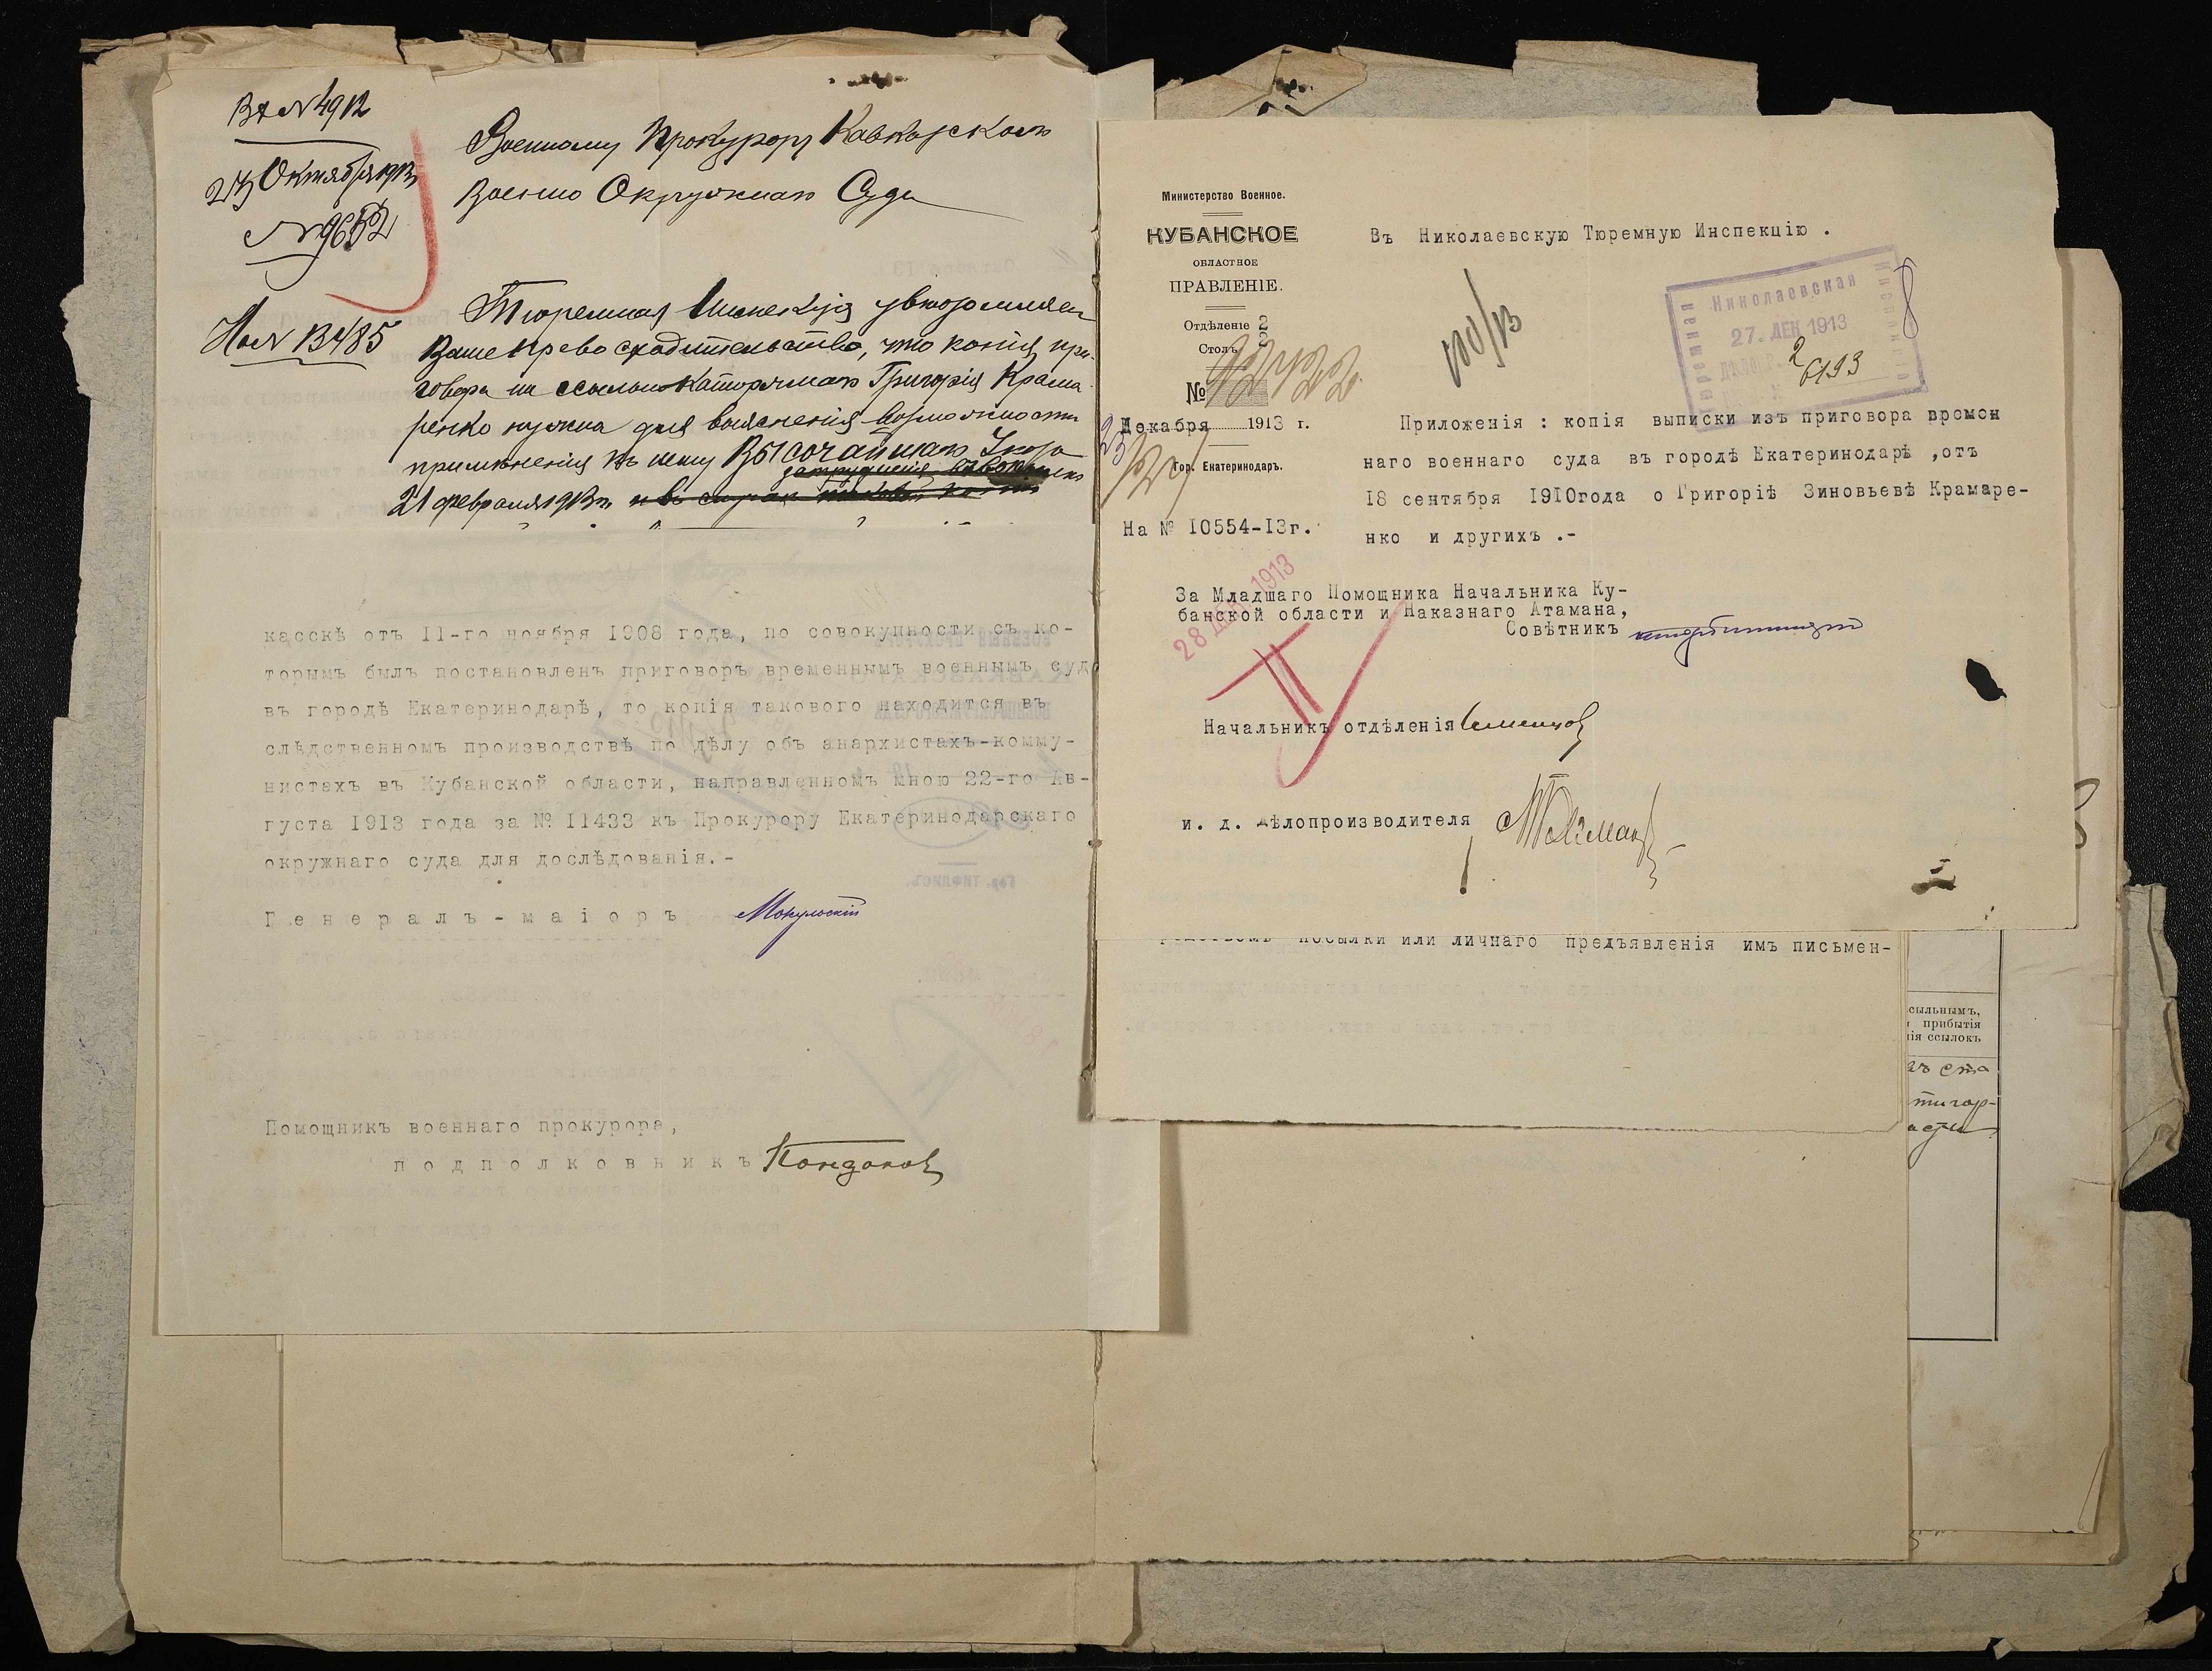 23 Октября 1913
№ 9652
На № 13485
Военному Прокурору Кавказскаго
Военно Окружнаго Суда
Тюремная Инспекція увѣдомляет
Ваше превосходительство, что копія при-
говора на ссыльно-каторжнаго Григорія Крама-
ренко нужна для выясненія возможности
примѣненія къ нему Высочайшаго Указа
21 февраля 1913 г.
касскѣ отъ 11-го ноября 1908 года, по совокупности съ ко-
торымъ былъ постановленъ приговоръ временнымъ военнымъ суд
въ городѣ Екатеринодарѣ, то копія такового находится въ
слѣдственномъ производствѣ по дѣлу объ анархистахъ-комму-
нистахъ въ Кубанской области, направленномъ мною 22-го Ав-
густа 1913 года за № 11433 къ Прокурору Екатеринодарскаго
окружнаго суда для дослѣдованія.-
Генералъ-маіоръ
Помощникъ военнаго прокурора,
подполковникъ
Министерство Военное.
КУБАНСКОЕ
ОБЛАСТНОЕ
ПРАВЛЕНІЕ.
Отдѣленіе 2
Столъ 2
№
Декабря 1913 г.
23
Гор. Екатеринодаръ.
На № 10554-13г.
Въ Николаевскую Тюремную Инспекцію .
Николаевская
Тюремная
Инспекція
27. ДЕК 1913
6193
Приложенія : копія выписки изъ приговора времен
наго военнаго суда въ городѣ Екатеринодарѣ ,отъ
18 сентября 1910года о Григоріѣ Зиновьевѣ Крамаре-
нко и другихъ .-
28 ДЕК 1913
За Младшаго Помощника Начальника Ку-
банской области и Наказнаго Атамана,
Совѣтникъ
Начальникъ отдѣленія
и. д. дѣлопроизводителя
посылки или личнаго предъявленія имъ письмен-
сыльнымъ,
прибытія
нія ссылокъ